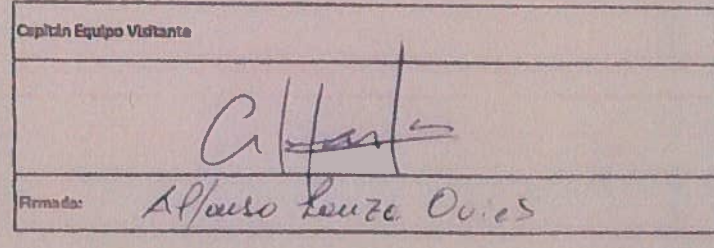 Capitán Equipo Visitante
Firmado: Alfonso Louzo Ovies